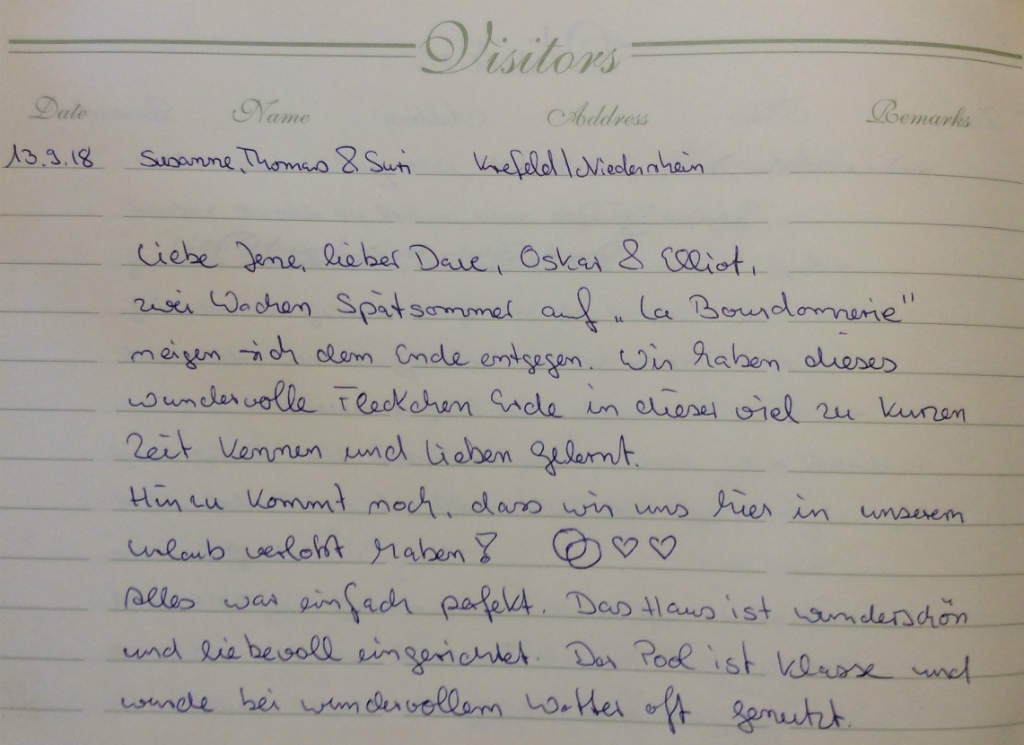 Visitors
Date Name Address Remarks
13.9.18 Susanne, Thomas & Susi Krefeld/Niederrhein
Liebe Jene, lieber Dave, Oskar & Elliot,
zwei Wochen Spätsommer auf „La Bourdonnerie"
neigen sich dem Ende entgegen. Wir haben dieses
wundervolle Fleckchen Erde in dieser viel zu kurzen
Zeit kennen und lieben gelernt.
Hinzu kommt noch, dass wir uns hier in unserem
Urlaub verlobt haben! ♡♡
Alles war einfach perfekt. Das Haus ist wunderschön
und liebevoll eingerichtet. Der Pool ist klasse und
wurde bei wundervollem Wetter oft genutzt.